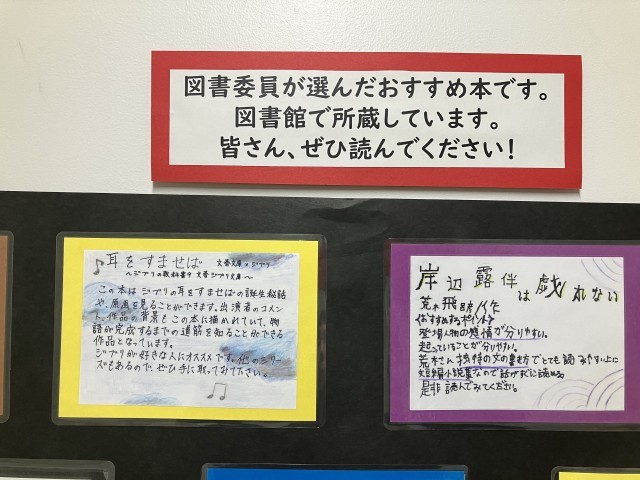 図書委員が選んだおすすめ本です。
図書館で所蔵しています。
皆さん、ぜひ読んでください!
♪耳をすませば 文春文庫×ジブリ
～ジブリの教科書9 文春ジブリ文庫～
この本はジブリの耳をすませばの誕生秘話
や、原画を見ることができます。出演者のコメン
ト、作品の背景もこの本に描かれていて、物
語が完成するまでの道筋を知ることができる
作品となっています。
ジブリが好きな人にオススメです。他のシリー
ズもあるので、ぜひ手に取ってみて下さい。
岸辺露伴は戯れない
荒木飛呂彦/作
登場人物の感情が分りやすい。
起っていることが分りやすい。
荒木さん独特の文の書き方でとても読みやすい上に
短編小説集なので話がすぐに読める。
是非読んでみてください。